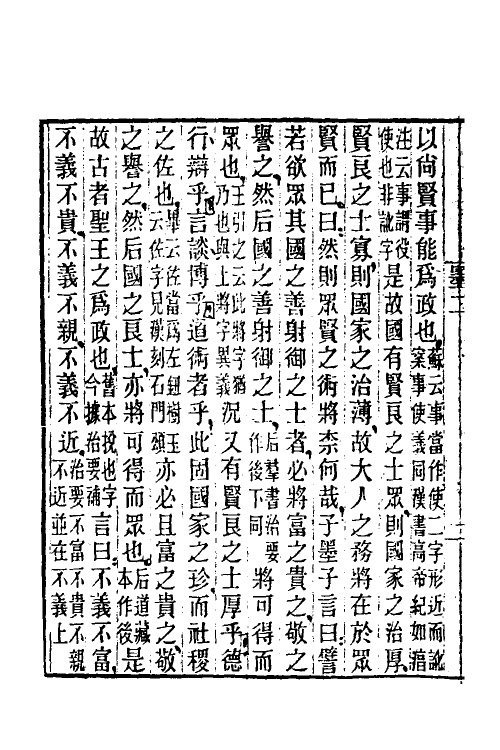 以尚賢事能爲政也蘇云事當作使二字形近而訛案事使義同漢書高帝紀如湻
注云事謂役使也非訛字是故國有賢良之士眾則國家之治厚
賢良之士寡則國家之治薄故大人之務將在於眾
賢而已曰然則眾賢之術將柰何哉子墨子言曰譬
若欲眾其國之善射御之士者必將富之貴之敬之
譽之然后國之善射御之士后羣書治要作後下同將可得而
眾也王引之云此將字猶乃也與上將字異義況又有賢良之士厚乎德
行辯乎言談博乎道術者乎此固國家之珍而社稷
之佐也畢云佐當爲左鈕樹玉云佐字見漢刻石門頌亦必且富之貴之敬
之譽之然后國之良士亦將可得而眾也后道藏本作後是
故古者聖王之爲政也舊本挩也字今據治要補言曰不義不富
不義不貴不義不親不義不近治要不富不貴不親不近並在不義上